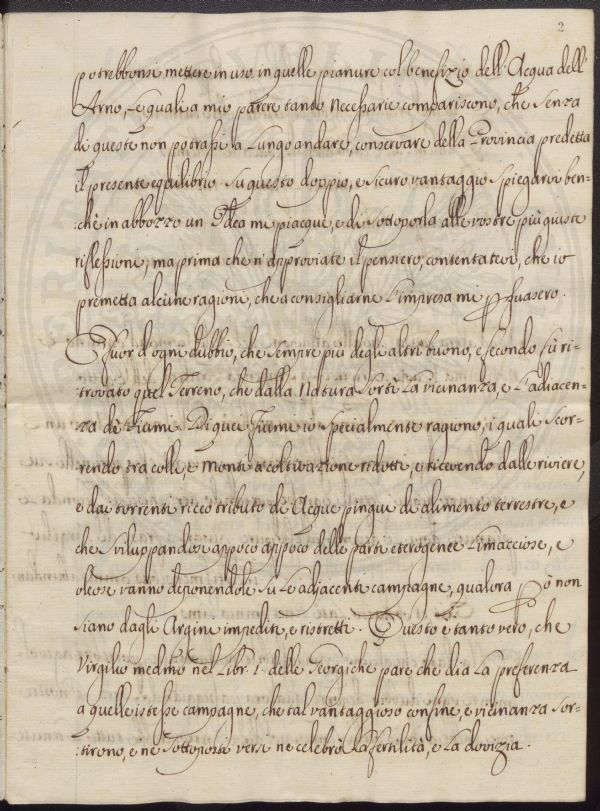 2
potrebbonsi mettere in uso in quelle pianure col benefizio dell'Acqua dell'
Arno, Le quali a mio parere tanto necessarie compariscono, che senza
di queste non potrassi a Lungo andare, conservare della Provincia predetta
il presente equilibrio. Su questo doppio, e sicuro vantaggio spiegarvi ben=
:chè in abbozzo un Idea mi piacque, e di sottoporla alle vostre più giuste
riflessioni; ma prima che n'approviate il pensiero, contentatevi, che io
premetta alcune ragioni, che a consigliarne L'impresa mi p̱suasero.
Fuor d'ogni dubbio, che sempre più degli altri buono, e fecondo fù ri=
trovato quel Terreno, che dalla Natura sortì La vicinanza, e L'adiacen=
za di Fiumi. Di quei Fiumi io specialmente ragiono, i quali scor=
rendo tra colli, e monti a coltivazione ridotti, e ricevendo dalle riviere,
e dai torrenti ricco tributo di Acque pingui di alimento terrestre, e
che sviluppandosi appoco appoco delle parti eterogenee Limacciose, e
oleose vanno deponendole su Le adjacenti campagne, qualora p̱ò non
siano dagli Argini impediti, e ristretti. Questo è tanto vero, che
Virgilio medmo nel Libr. 1. delle Georgiche pare che dia La preferenza
a quelle istesse campagne, che tal vantaggioso confine, e vicinanza sor=
:tirono, e ne sottoposti versi ne celebrò La fertilità, e La dovizia.